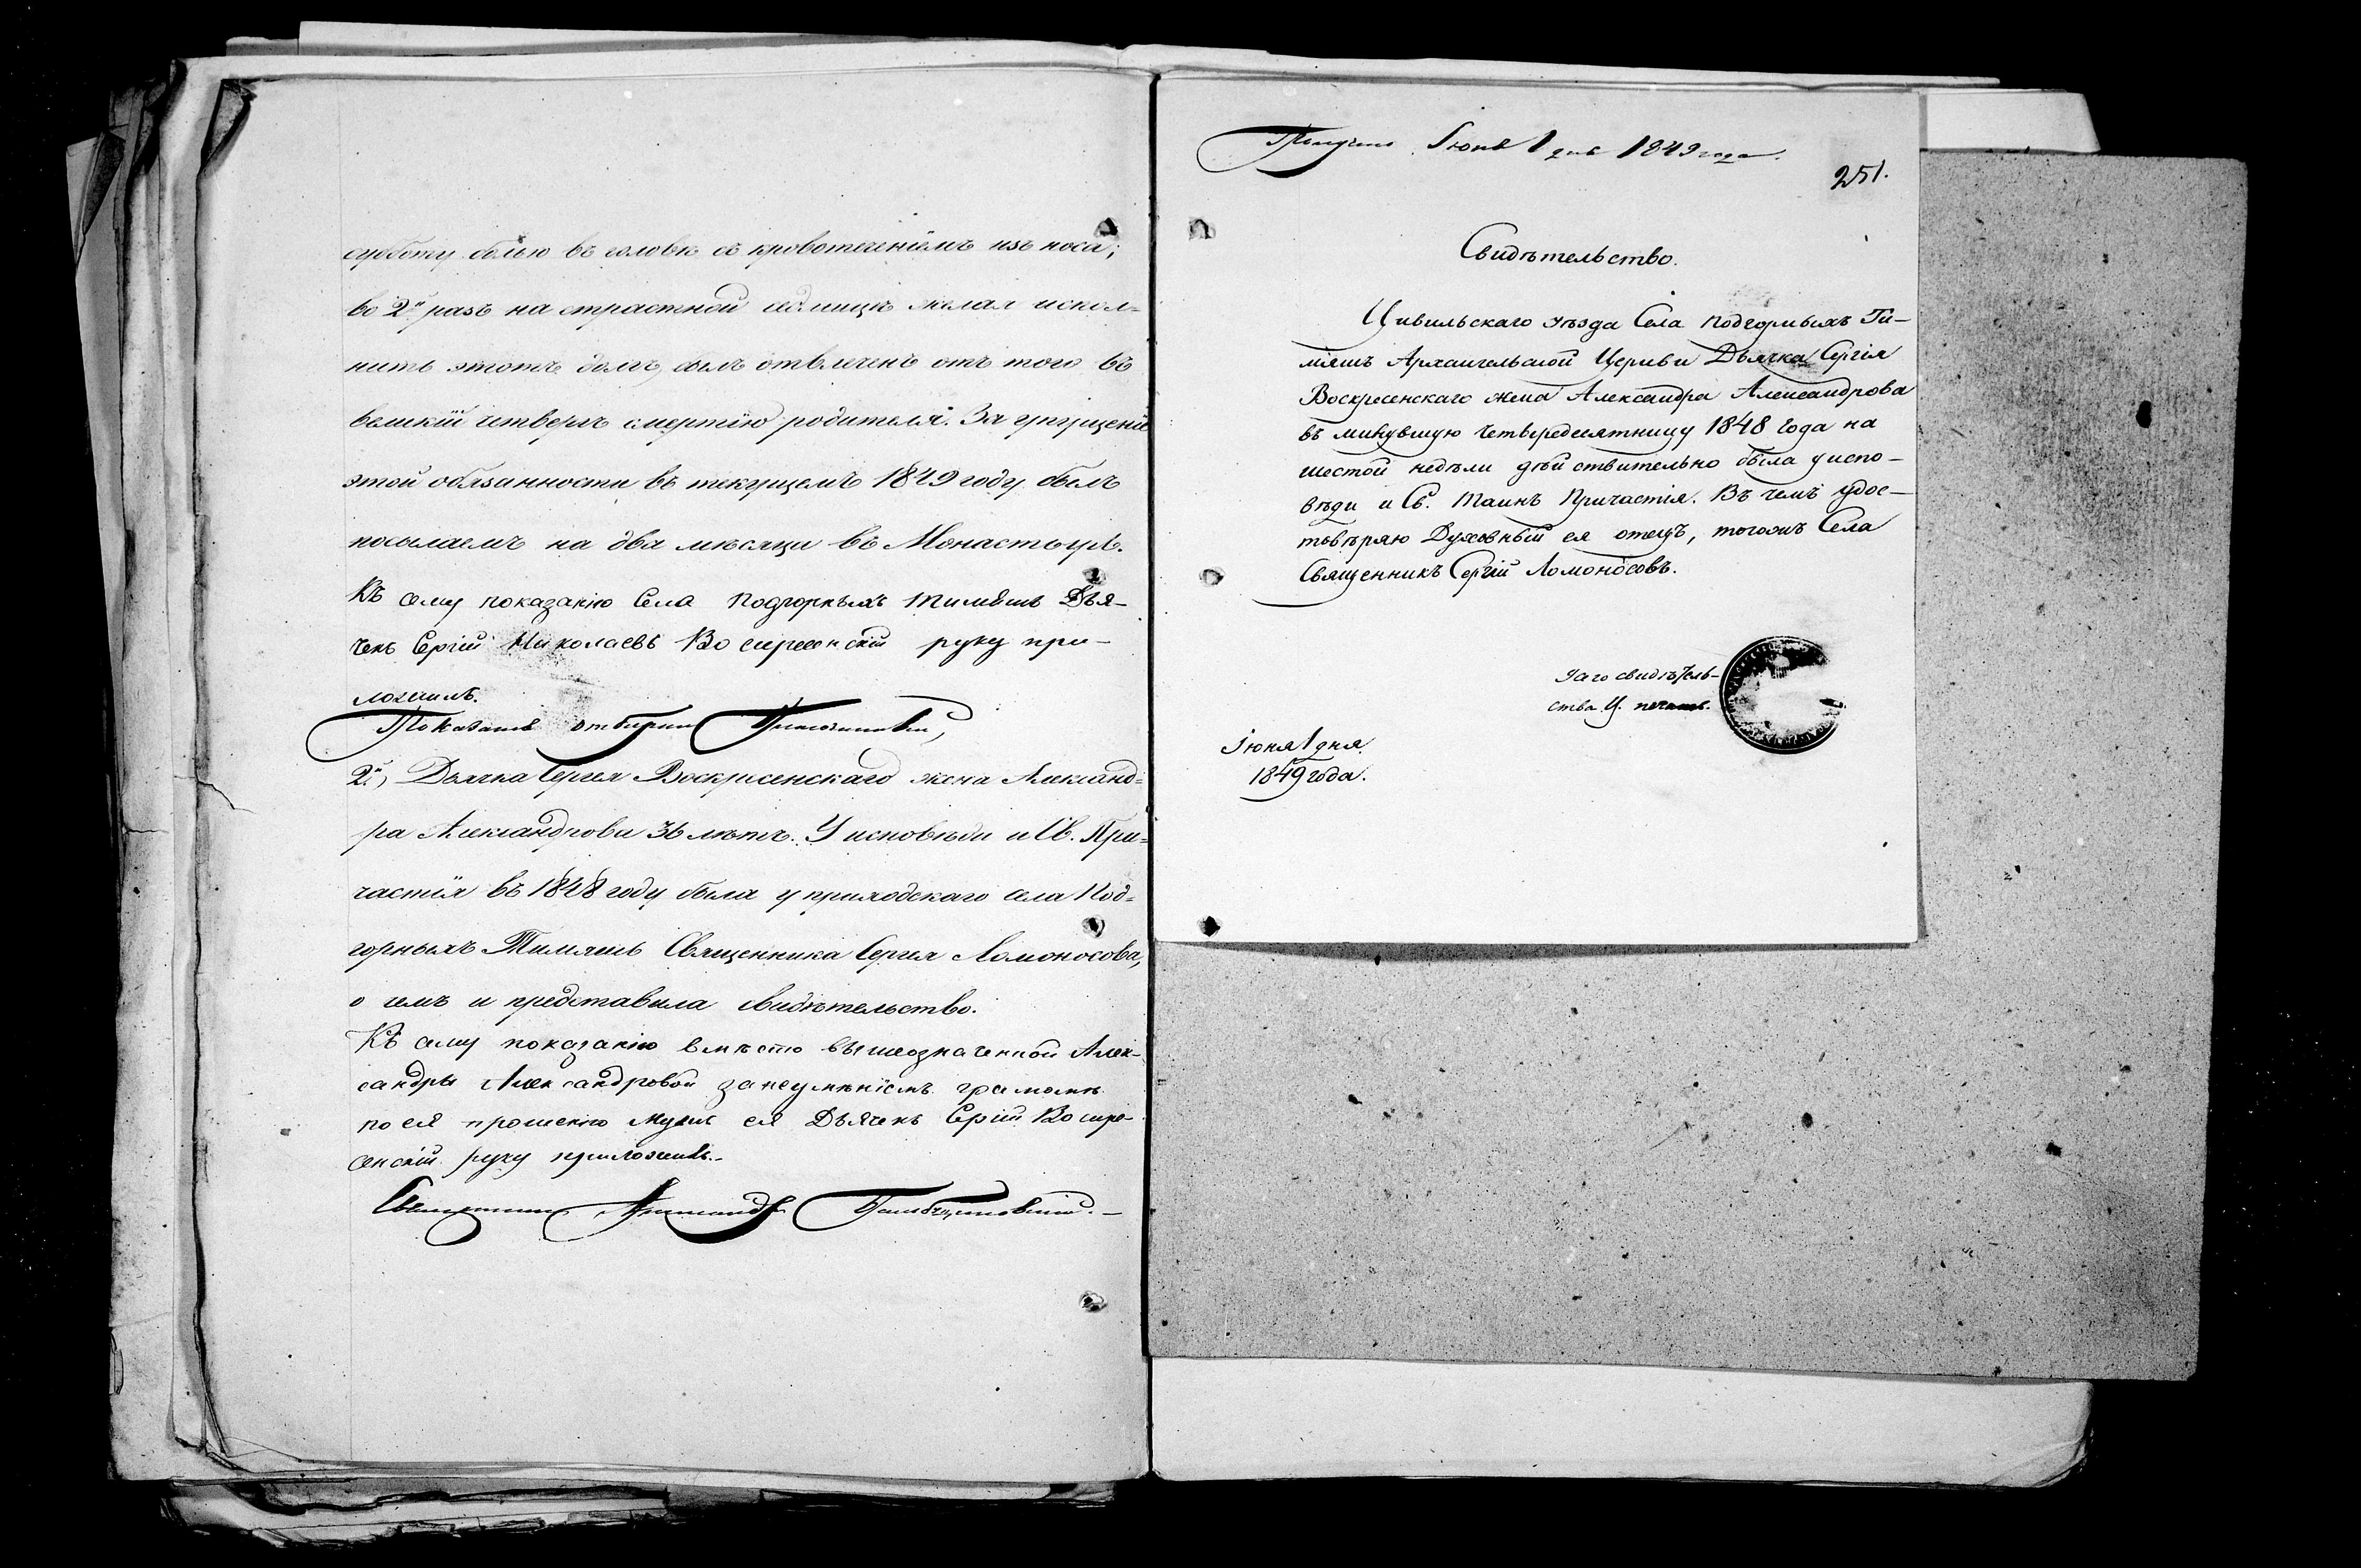 субботу болью въ головѣ съ кровотеченіемъ изъ носа;
во 2й разъ на страстной седмицѣ желая испол=
нить этотъ долгъ, былъ отвлеченъ отъ того въ
великій четвергъ смертію родителя. За упущеніе
этой обязанности въ текущемъ 1849 году былъ
посылаемъ на два мѣсяца въ Монастырь.
Къ сему показанію Села Подгорныхъ Тимяшъ Дья-
чекъ Сергій Николаевъ Воскресенскій руку при-
ложилъ.
Показаніе отбиралъ
2й, Дьячка Сергея Воскресенскаго жена Александ=
ра Александрова 36 лѣтъ. У исповѣди и Св. При=
частія въ 1848 году была у приходскаго села Под=
горныхъ Тимяшь Священника Сергея Ломоносова,
о чемъ и представила свидѣтельство.
Къ сему показанію вмѣсто вышеозначенной Алек-
сандры Александровой за неумѣніемъ грамотѣ
по ея прошенію мужъ ея Дьячекъ Сергій Воскре-
сенскій руку приложилъ.
Священникъ Александръ
Получено Іюня 1 дня 1849 года.
251.
Свидѣтельство.
Цивильскаго уѣзда Села Подгорныхъ Ти-
мяшъ Архангельской Церкви Дьячка Сергія
Воскресенскаго жена Александра Александрова
въ минувшую четыредесятницу 1848 года на
шестой недѣли дѣйствительно была у испо-
вѣди и Св. Таинъ Причастія. Въ чемъ удос-
товѣряю Духовный ея отецъ, тогожъ Села
Священникъ Сергій Ломоносовъ.
У сего свидѣтель-
ства Ц. печать.
Іюня 1 дня
1849 года.